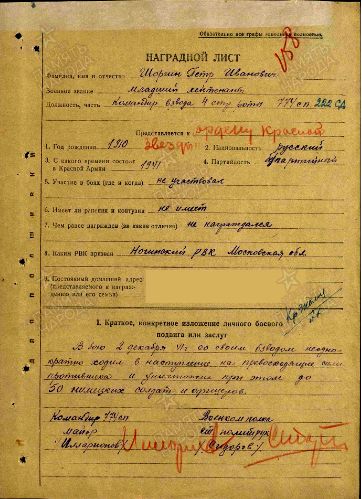 Обязательно все графы заполнять полностью.
158
НАГРАДНОЙ ЛИСТ
Фамилия, имя и отчество Шоргин Петр Иванович
Военное звание младший лейтенант
Должность, часть командир взвода 4 стр. роты 774 сп. 222 СД
Представляется к ордену Красной
звезды
1. Год рождения 1910 2. Национальность русский
3. С какого времени состоит в Красной Армии 1941 4. Партийность б/партийный
5. Участие в боях (где и когда) не участвовал
6. Имеет ли ранения и контузии не имеет
7. Чем ранее награжден (за какие отличия) не награждался
8. Каким РВК призван Ногинский РВК Московская обл.
9. Постоянный домашний адрес
(представляемого к награж-
дению или его семьи)
I. Краткое, конкретное изложение личного боевого
подвига или заслуг
В бою 2 декабря 41г. со своим взводом неодно-
кратно ходил в наступление на превосходящие силы
противника и уничтожил при этом до
50 немецких солдат и офицеров.
Командир 774 сп Военком полка
майор ст. политрук
/Илларионов/ /Сидоров/